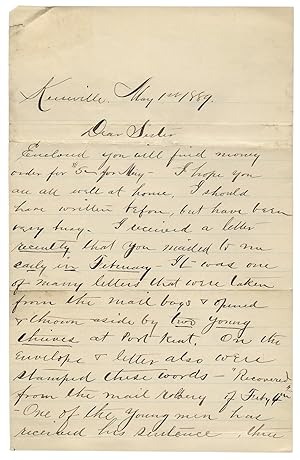 Keeseville, May 1st 1889.
Dear Sister
Enclosed you will find money
order for $5 - for May - I hope you
are all well at home. I should
have written before, but have been
very busy. I received a letter
recently that you mailed to me
early in February - It was one
of many letters that were taken
from the mail bags & opened
& thrown aside by two young
thieves at Port Kent. On the
envelope & letter also were
stamped these words - "Recovered
from the mail robbery of Feby 4th"
- One of the young men has
received his sentence, three